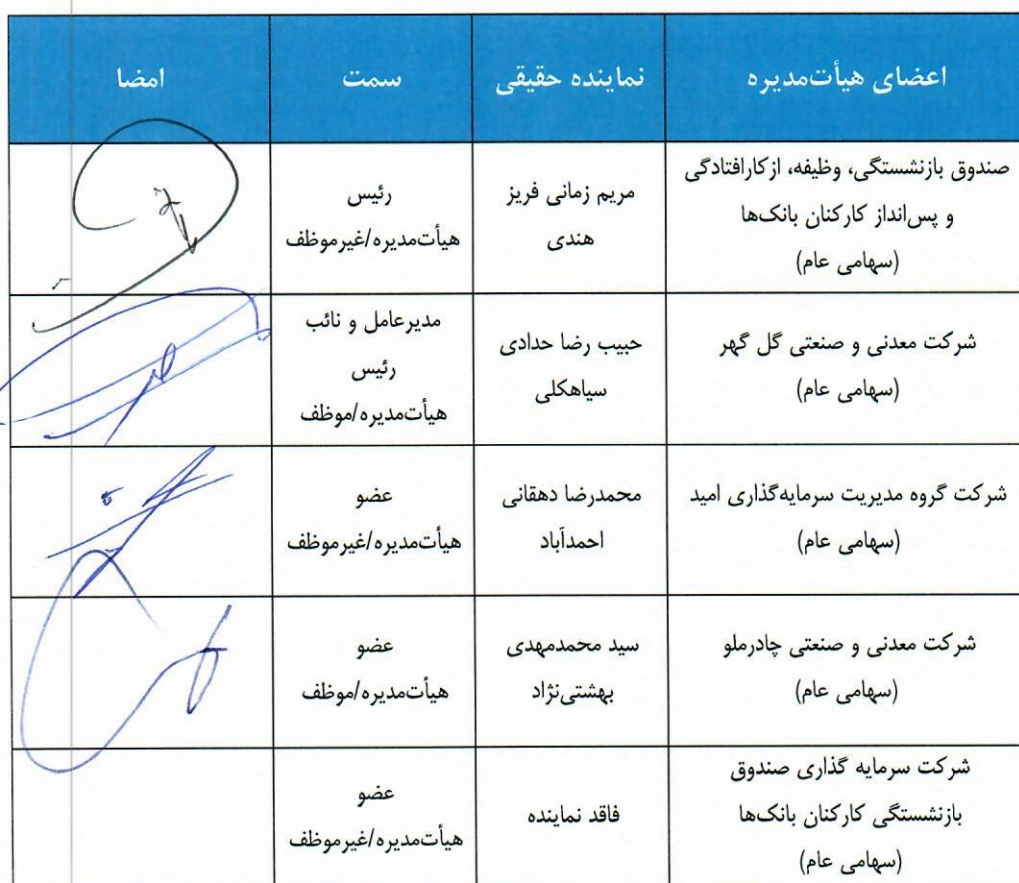 اعضای هیأت‌مدیره	نماینده حقیقی	سمت	امضا
صندوق بازنشستگی، وظیفه، ازکارافتادگی
و پس‌انداز کارکنان بانک‌ها
(سهامی عام)
مریم زمانی فریز
هندی
رئیس
هیأت‌مدیره/غیرموظف
شرکت معدنی و صنعتی گل گهر
(سهامی عام)
حبیب رضا حدادی
سیاهکلی
مدیرعامل و نائب
رئیس
هیأت‌مدیره/موظف
شرکت گروه مدیریت سرمایه‌گذاری امید
(سهامی عام)
محمدرضا دهقانی
احمدآباد
عضو
هیأت‌مدیره/غیرموظف
شرکت معدنی و صنعتی چادرملو
(سهامی عام)
سید محمدمهدی
بهشتی‌نژاد
عضو
هیأت‌مدیره/موظف
شرکت سرمایه گذاری صندوق
بازنشستگی کارکنان بانک‌ها
(سهامی عام)
فاقد نماینده
عضو
هیأت‌مدیره/غیرموظف